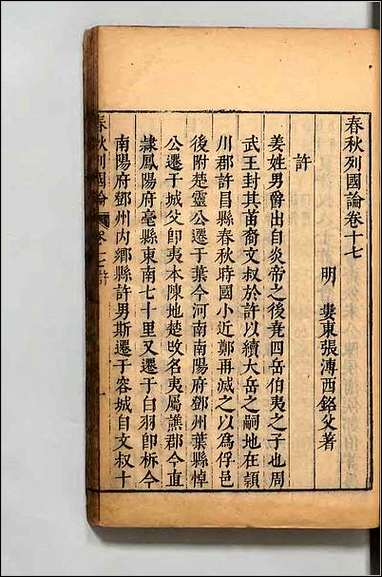 春秋列國論卷十七
明 婁東張溥西銘父著
許
姜姓男爵出自炎帝之後堯四岳伯夷之子也周
武王封其苗裔文叔於許以續大岳之嗣地在潁
川郡許昌縣春秋時國小近鄭再滅之以爲俘邑
後附楚靈公遷于葉今河南南陽府鄧州葉縣悼
公遷于城父卽夷本陳地楚攺名夷屬譙郡今直
隸鳳陽府亳縣東南七十里又遷于白羽卽析今
南陽府鄧州內鄉縣許男斯遷于容城自文叔十
春秋列國論 卷十七許 一